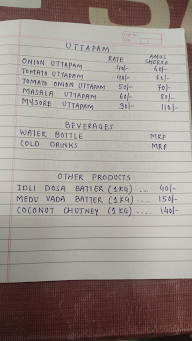 UTTAPAM
RATE AMUL CHEESE
ONION UTTAPAM 40/- 60/-
TOMATO UTTAPAM 40/- 60/-
TOMATO ONION UTTAPAM 50/- 70/-
MASALA UTTAPAM 60/- 80/-
MYSORE UTTAPAM 90/- 110/-
BEVERAGES
WATER BOTTLE MRP
COLD DRINKS MRP
OTHER PRODUCTS
IDLI DOSA BATTER (1KG) ... 40/-
MEDU VADA BATTER (1KG) .... 150/-
COCONUT CHUTNEY (1KG) 140/-